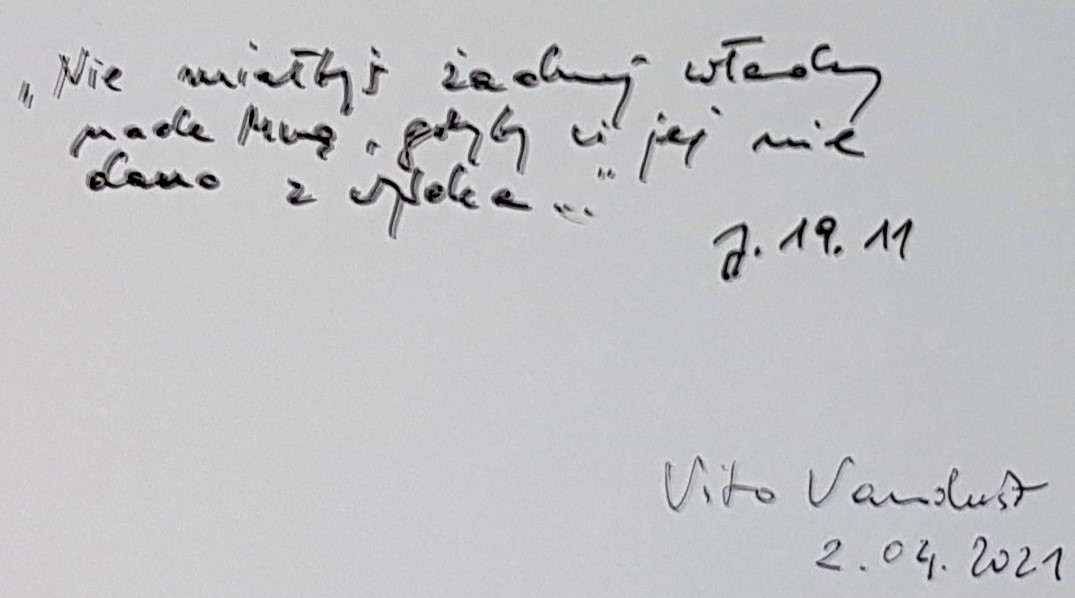 „Nie miałbyś żadnej władzy
nade Mną, gdyby ci jej nie
dano z wysoka..."
J. 19. 11
Vito Vandust
2.04.2021